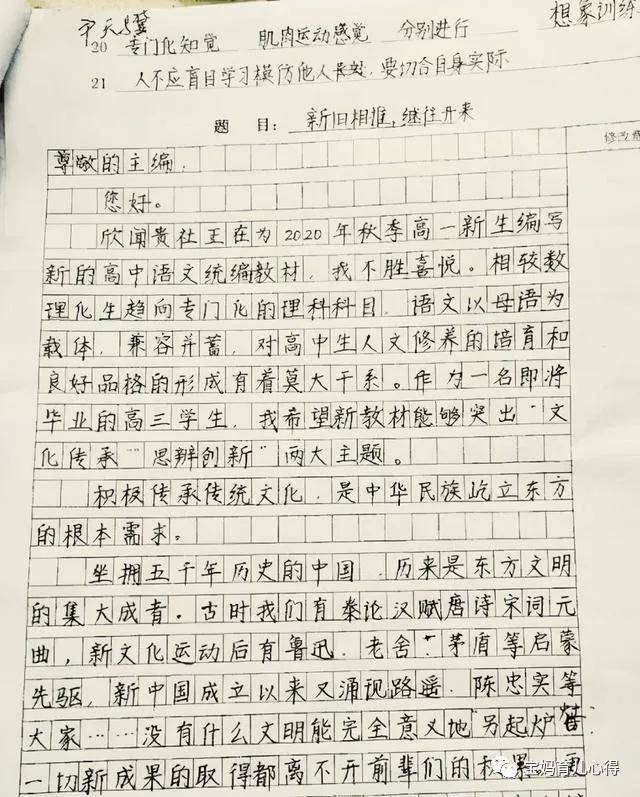 想象训练
20 专门化知觉 肌肉运动感觉 分别进行
21 人不应盲目学习模仿他人长处，要切合自身实际
题 目：新旧相推，继往开来
修改
尊敬的主编，
您好。
欣闻贵社正在为2020年秋季高一新生编写
新的高中语文统编教材，我不胜喜悦。相较数
理化生趋向专门化的理科科目，语文以母语为
载体，兼容并蓄，对高中生人文修养的培育和
良好品格的形成有着莫大干系。作为一名即将
毕业的高三学生，我希望新教材能够突出“文
化传承”“思辨创新”两大主题。
积极传承传统文化，是中华民族屹立东方
的根本需求。
坐拥五千年历史的中国，历来是东方文明
的集大成者。古时我们有秦论汉赋唐诗宋词元
曲，新文化运动后有鲁迅、老舍、茅盾等启蒙
先驱，新中国成立以来又涌现路遥、陈忠实等
大家……没有什么文明能完全意义地“另起炉灶”.
一切新成果的取得都离不开前辈们的
宝妈育儿心得